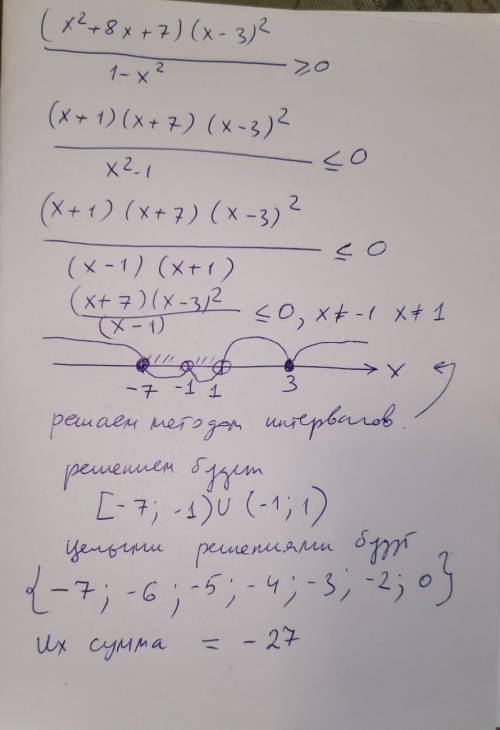 (x²+8x+7)(x-3)²
1-x² ≥0
(x+1)(x+7)(x-3)²
x²-1 ≤0
(x+1)(x+7)(x-3)²
(x-1)(x+1) ≤0
(x+7)(x-3)²
(x-1) ≤0, x≠-1 x≠1
-7 -1 1 3 x
решаем методом интервалов.
решением будет
[-7; -1)∪(-1; 1)
Целыми решениями будут
{-7; -6; -5; -4; -3; -2; 0}
Их сумма = -27